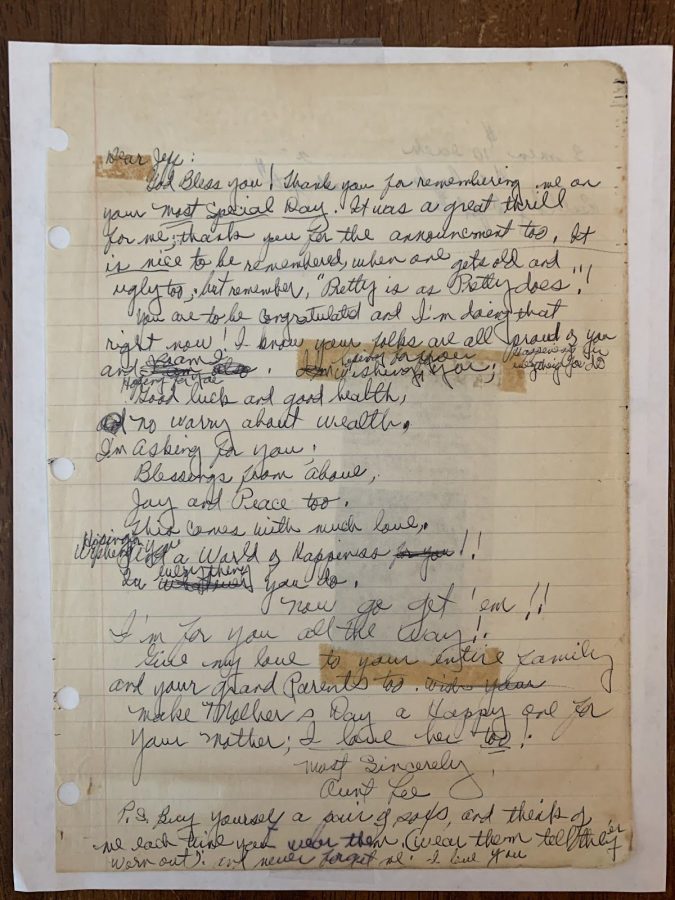 Dear Jeff:
God Bless you! Thank you for remembering me on
your most Special Day. It was a great thrill
for me; thank you for the announcment too. It
is nice to be remembered, when one gets old and
ugly too, but remember, "Pretty is as Pretty does"!
You are to be Congratulated and I'm doing that
right now! I know your folks are all proud of you
and I am also. I'm wishing you;
Happiness in
everything you do
Hoping for you
Good luck and good health,
and no worry about wealth.
I'm Asking for you;
Blessings from above,
Joy and Peace too.
This comes with much love,
Wishing you
and a World of Happiness for you!!
everything
In whatever you do.
Now go get 'em!!
I'm for you all the way!!
Give my love to your entire family
and your grand Parents too. wish your
Make Mother's Day a Happy one for
your Mother; I love her too!
Most Sincerely,
Aunt Lee
P.S. Buy yourself a pair of sox, and think of
me each time you wear them. (Wear them till they're
worn out)! and never forget me. I love you